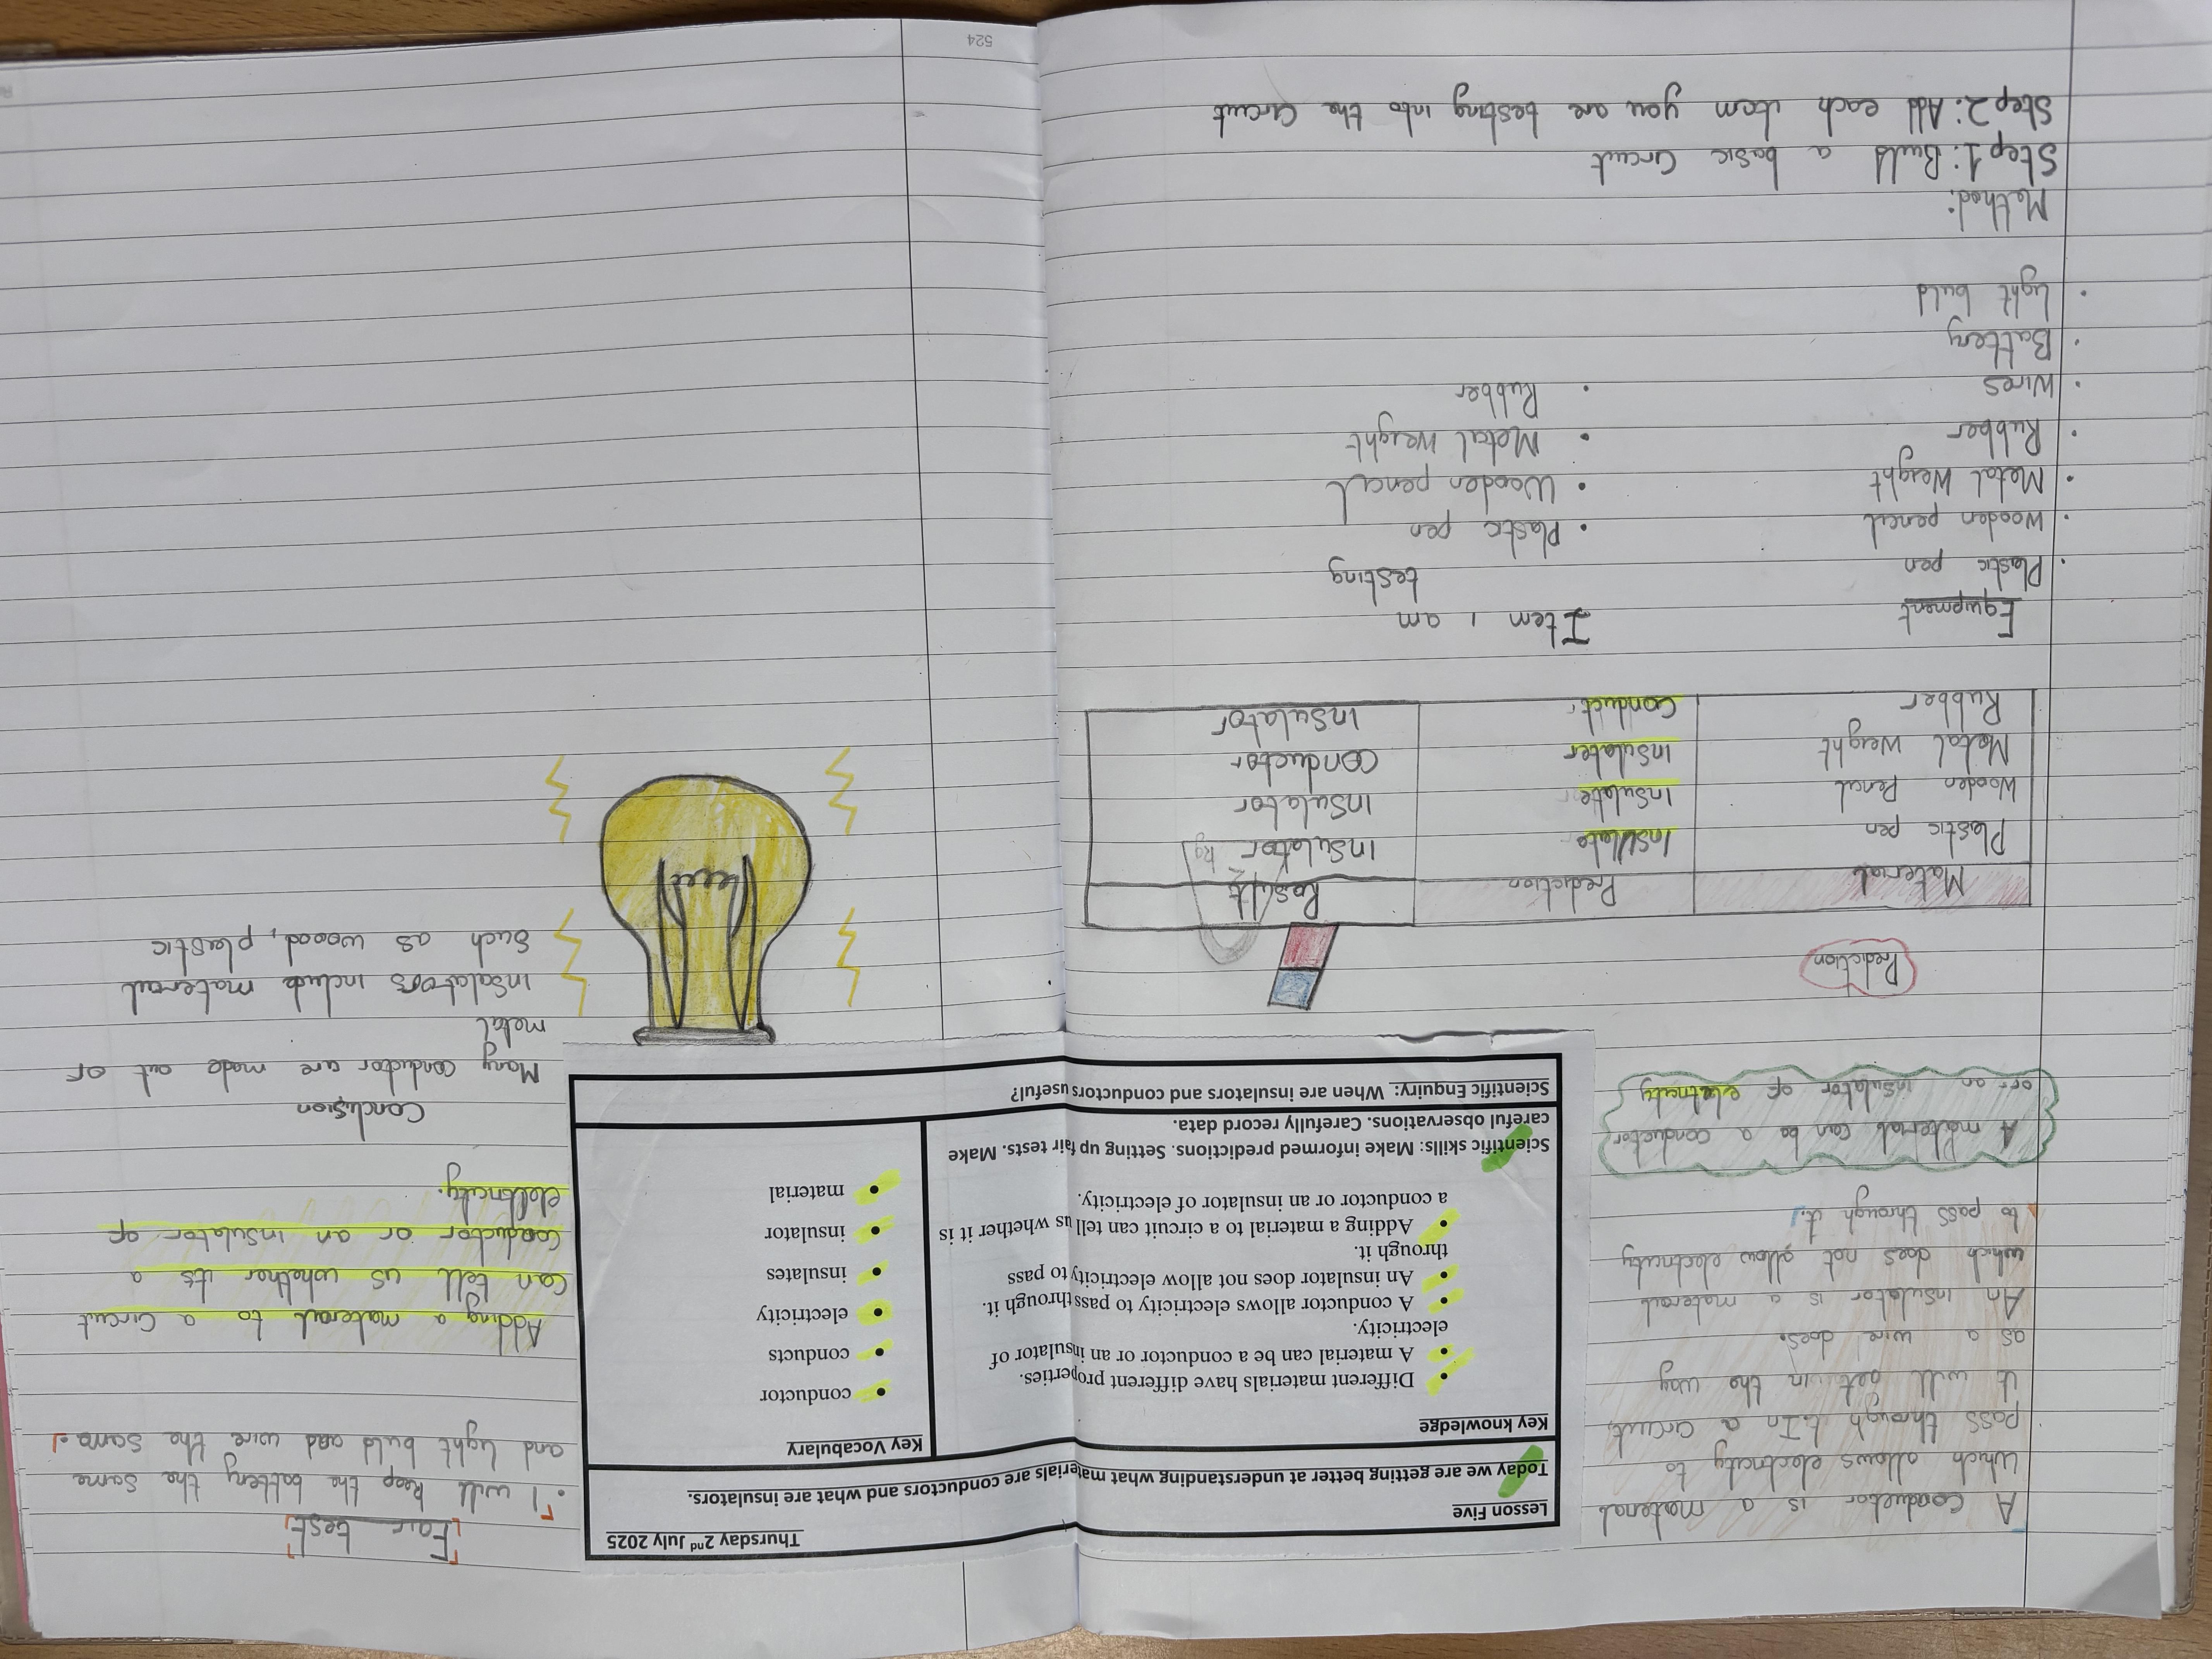 A conductor is a material
which allows electricity to
pass through it. In a circuit,
it will act in the way
as a wire does.
An insulator is a material
which does not allow electricity
to pass through it.
A material can be a conductor
or an insulator of eletricity
Lesson Five
Thursday 2nd July 2025
Today we are getting better at understanding what materials are conductors and what are insulators.
Key knowledge
Different materials have different properties.
A material can be a conductor or an insulator of
electricity.
A conductor allows electricity to pass through it.
An insulator does not allow electricity to pass
through it.
Adding a material to a circuit can tell us whether it is
a conductor or an insulator of electricity.
Key Vocabulary
conductor
conducts
electricity
insulates
insulator
material
Scientific skills: Make informed predictions. Setting up fair tests. Make
careful observations. Carefully record data.
Scientific Enquiry: When are insulators and conductors useful?
Prediction
Material Prediction Result
Plastic pen Insulate Insulator
Wooden Pencil Insulate Insulator
Metal Weight Insulater conductor
Rubber Conduct Insulator
Equipment
Plastic pen
Wooden pencil
Metal Weight
Rubber
Wires
Battery
Light buld
Item i am
testing
Plastic pen
Wooden pencil
Metal Weight
Rubber
Method:
Step 1: Build a basic Circuit
Step 2: Add each item you are testing into the Circuit
Fair test
I will keep the battery the same
and light buld and wire the same.
Adding a material to a Circuit
Can tell us whether its a
conductor or an insulator of
eletricity.
Conclusion
Many conductor are made out of
metal
insalators include material
Such as woood, plastic
524